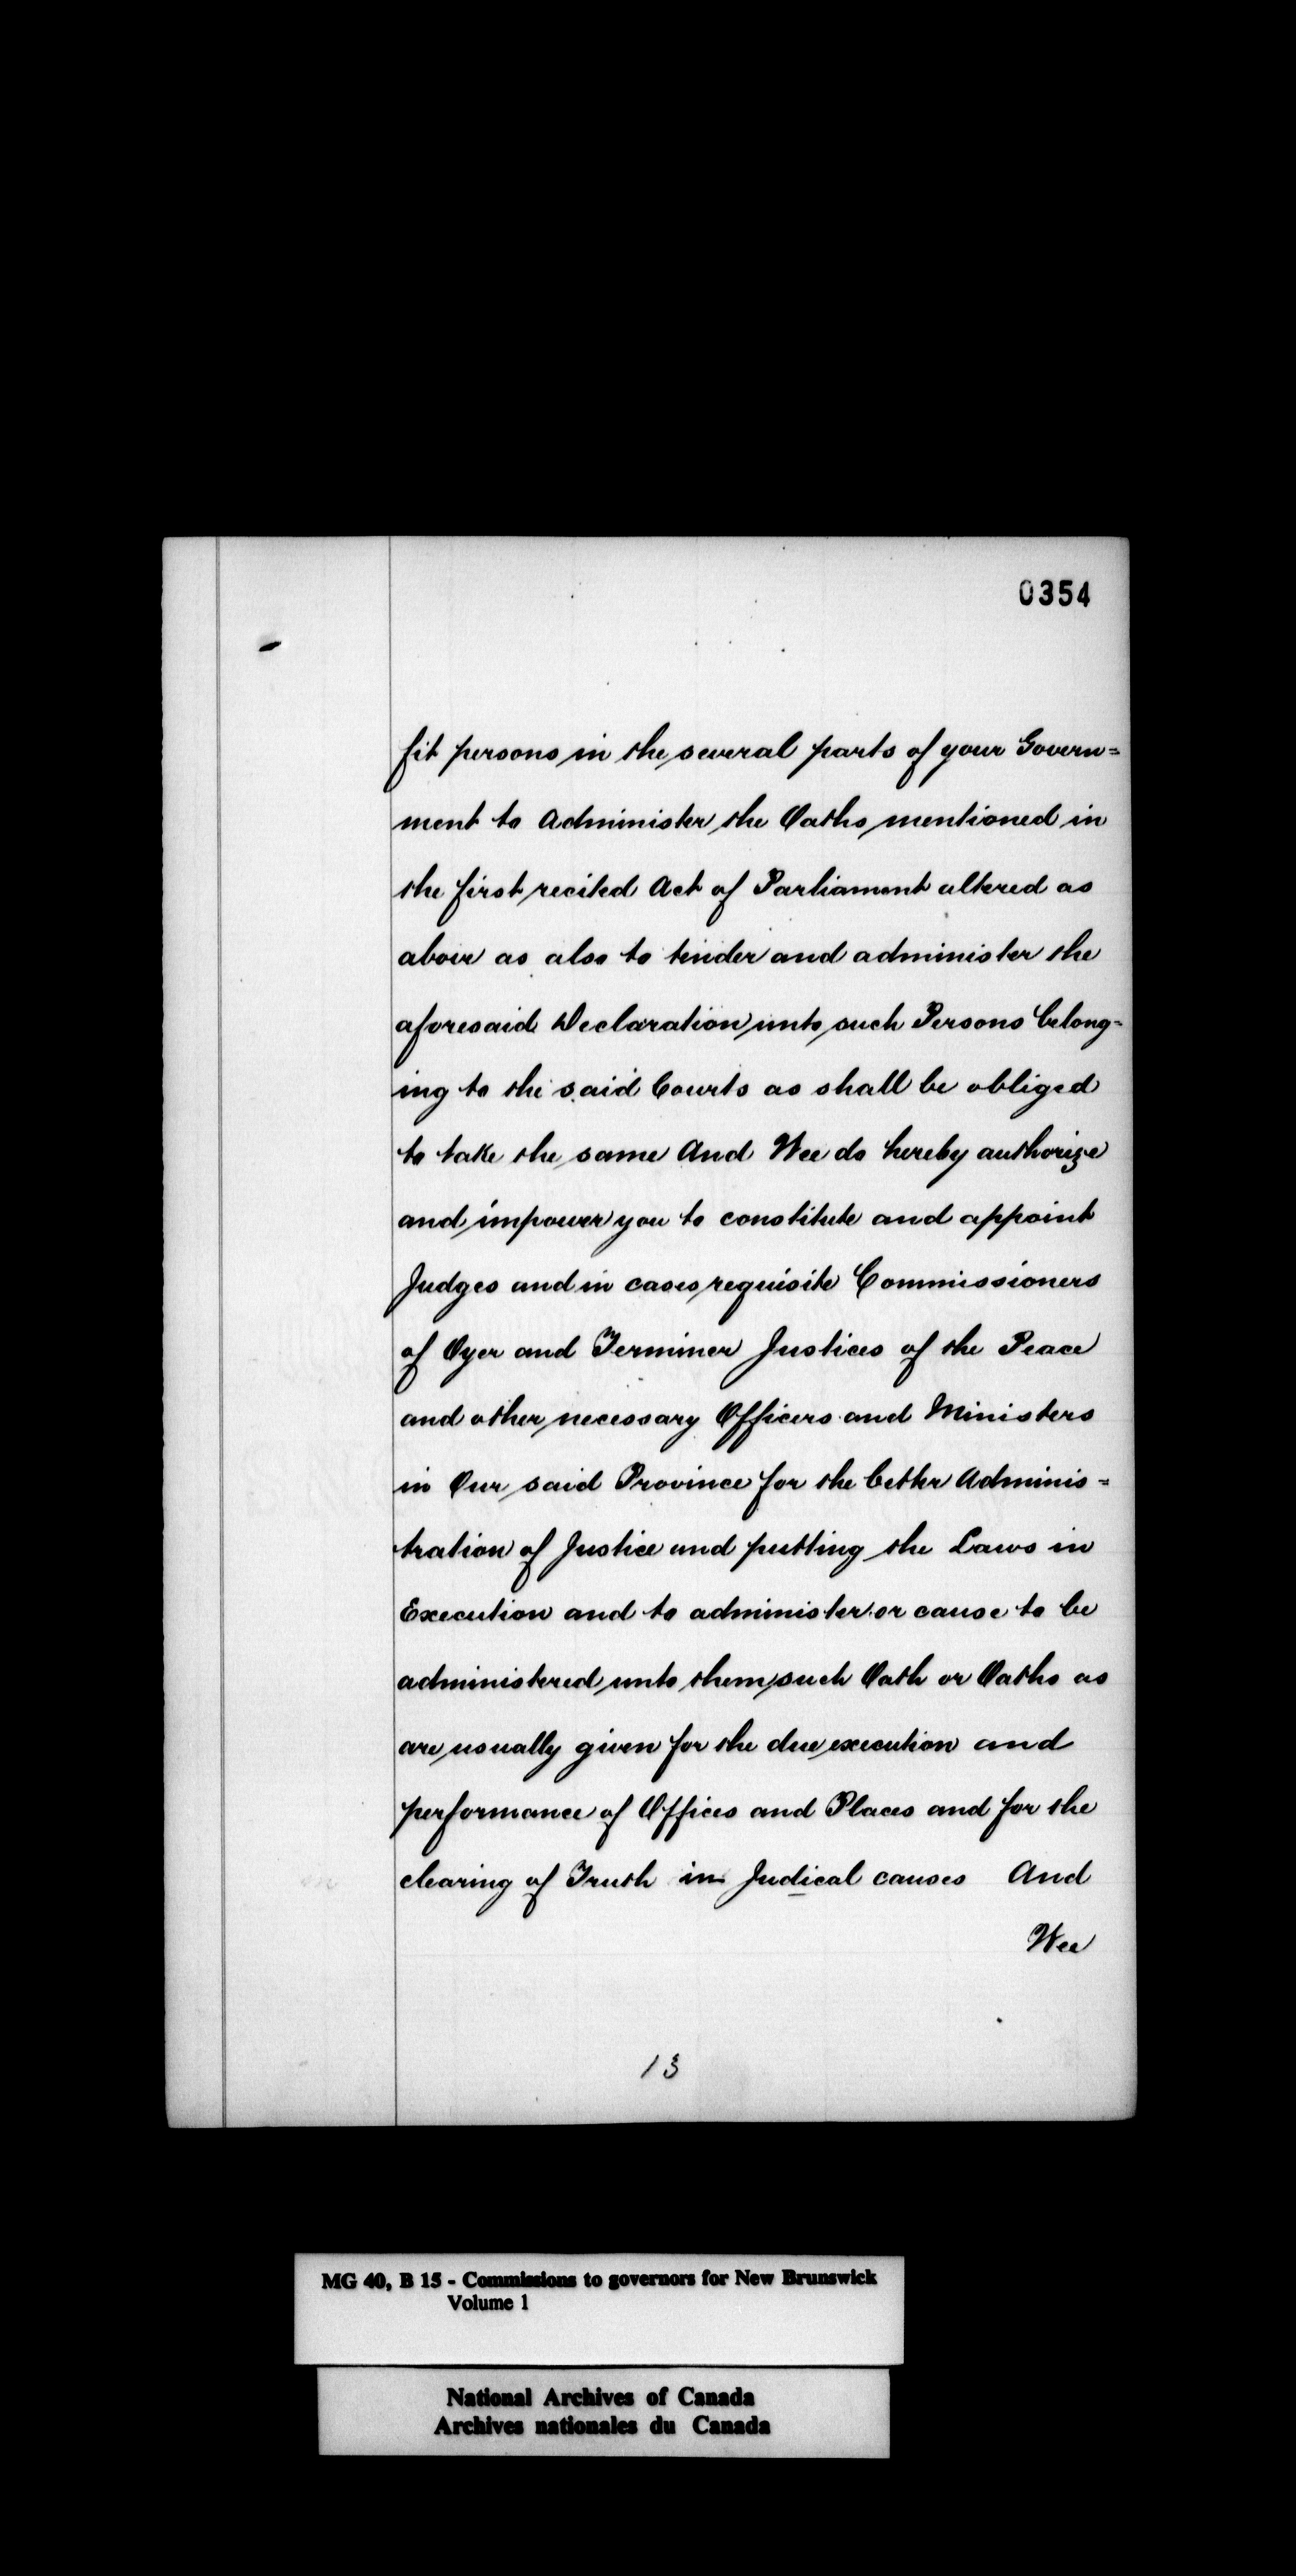 0354
fit persons in the several parts of your Govern=
ment to Administer the Oaths mentioned in
the first recited Act of Parliament altered as
above as also to tender and administer the
aforesaid Declaration unto such Persons belong=
ing to the said Courts as shall be obliged
to take the same And Wee do hereby authorize
and impower you to constitute and appoint
Judges and in cases requisite Commissioners
of Oyer and Terminer Justices of the Peace
and other necessary Officers and Ministers
in Our said Province for the better Adminis=
tration of Justice and putting the Laws in
Execution and to administer or cause to be
administered unto them such Oath or Oaths as
are usually given for the due execution and
performance of Offices and Places and for the
clearing of Truth in Judical causes And
Wee
13
MG 40, B 15 - Commissions to governors for New Brunswick
Volume 1
National Archives of Canada
Archives nationales du Canada